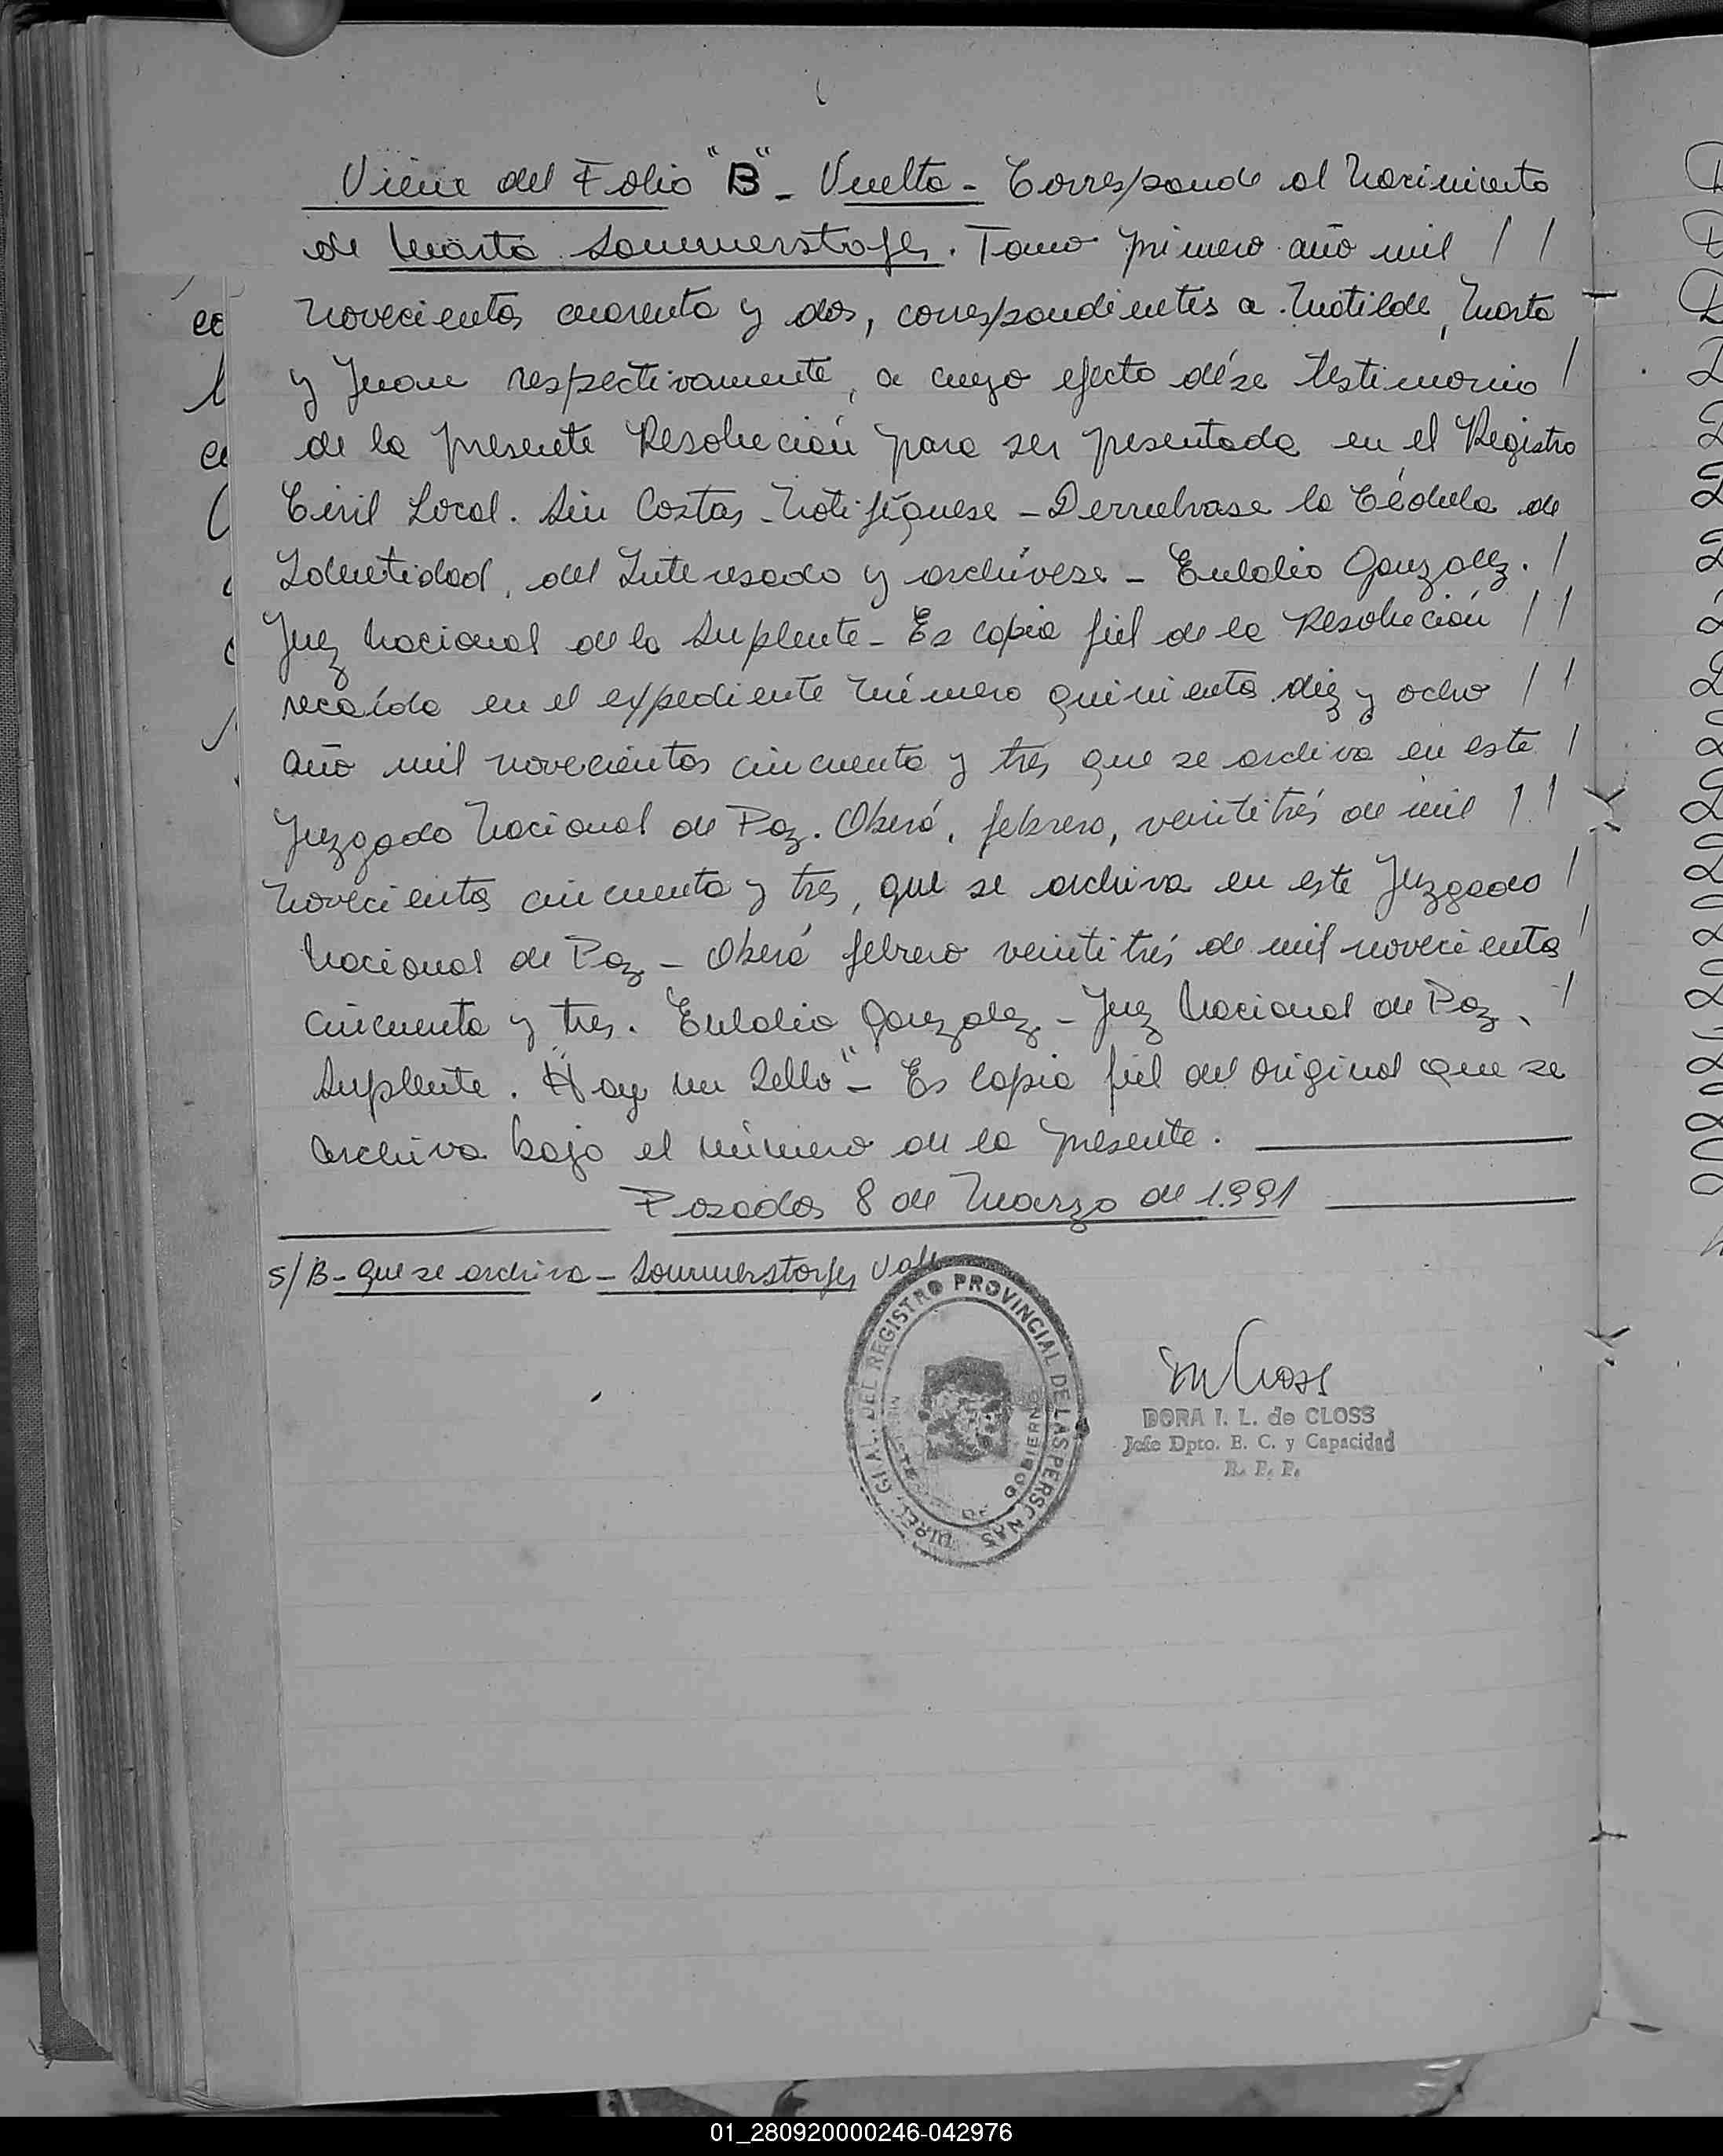 Viene del Folio "B" - Vuelta - Corresponde al Nacimiento
de Marta Sommerstorfer. Tomo primero año mil / /
novecientos cuarenta y dos, correspondientes a Matilde, Marta
y Juan respectivamente, a cuyo efecto déze testimonio /
de la presente Resolución para ser pesentada en el Registro
Civil Local. Sin Costas - Notifíquese - Devuelvase la Cédula de
Identidad, del Interesado y archívese - Eulalio Gonzalez. /
Juez Nacional de la Suplente - Es copia fiel de la Resolución / /
recaída en el expediente número quinientos diez y ocho / /
año mil novecientos cincuenta y tres que se archiva en este /
Juzgado Nacional de Paz. Oberá, febrero, veintitrés de mil / /
novecientos cincuenta y tres, que se archiva en este Juzgado /
Nacional de Paz - Oberá febrero veintitrés de mil novecientos /
cincuenta y tres. Eulalio Gonzalez - Juez Nacional de Paz, /
Suplente. "Hay un Sello" - Es copia fiel del original que se
archiva bajo el número de la presente.
Posadas 8 de Marzo de 1.991
S/B - que se archiva - Sommerstorfer Vale
DIREC. GRAL. DEL REGISTRO PROVINCIAL DE LAS PERSONAS
MINISTERIO DE GOBIERNO
DORA I. L. de CLOSS
Jefe Dpto. E. C. y Capacidad
R. P. P.
01_280920000246-042976